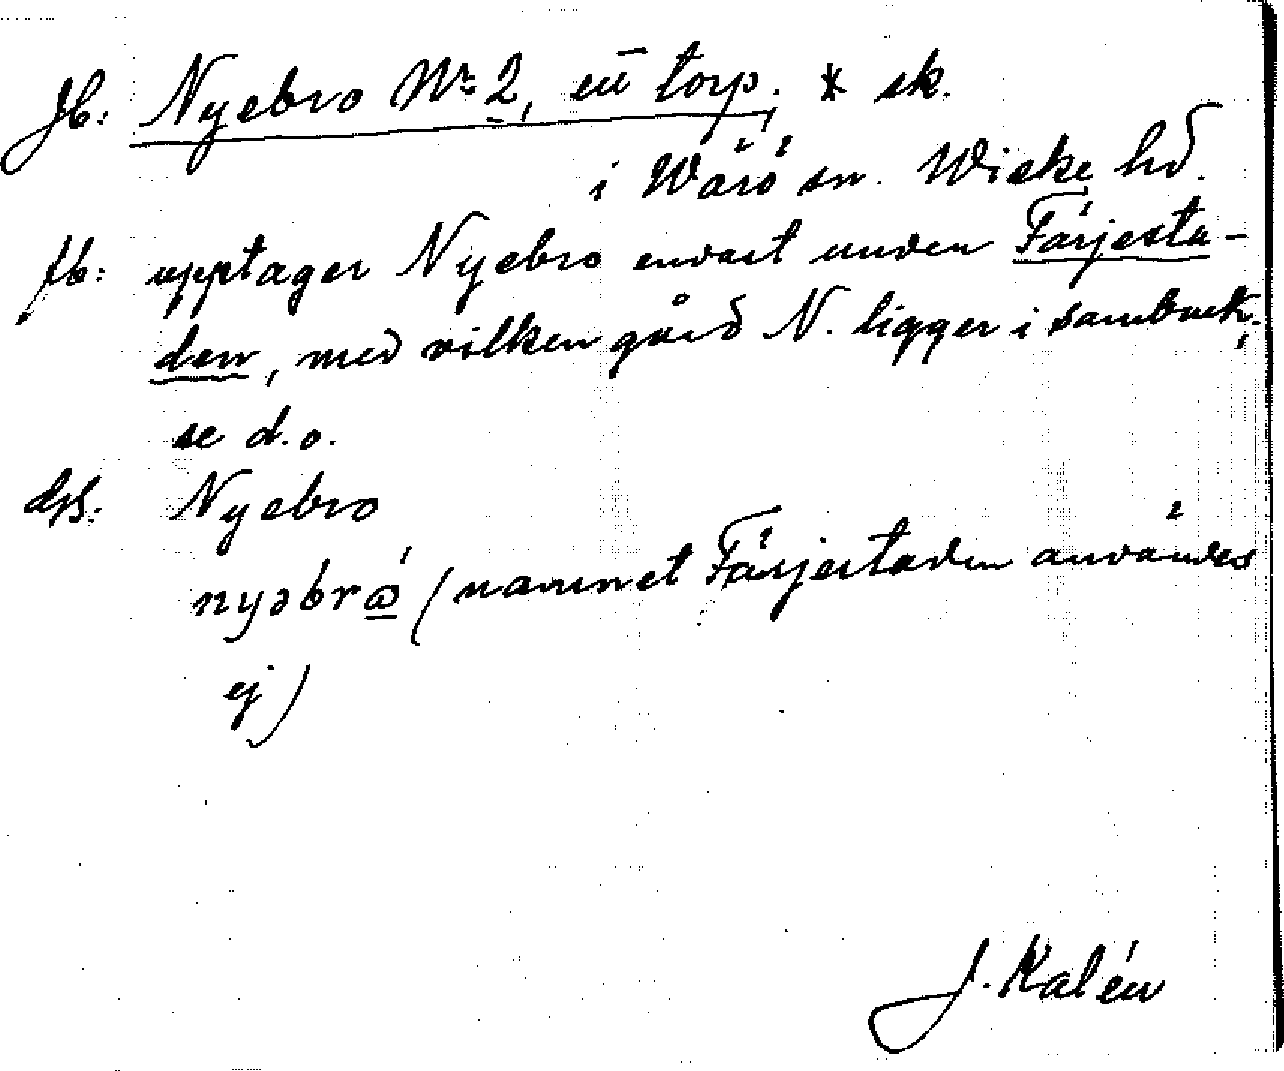 Jb: Nyebro Nr 2, en torp. * sk.
i Wärö sn. Wiske hd.
fb: upptager Nyebro endast under Färjesta-
den, med vilken gård N. ligger i sambruk,
se d.o.
Nyebro
nyəbrɷ́ (namnet Färjestaden användes
ej)
J. Kalén